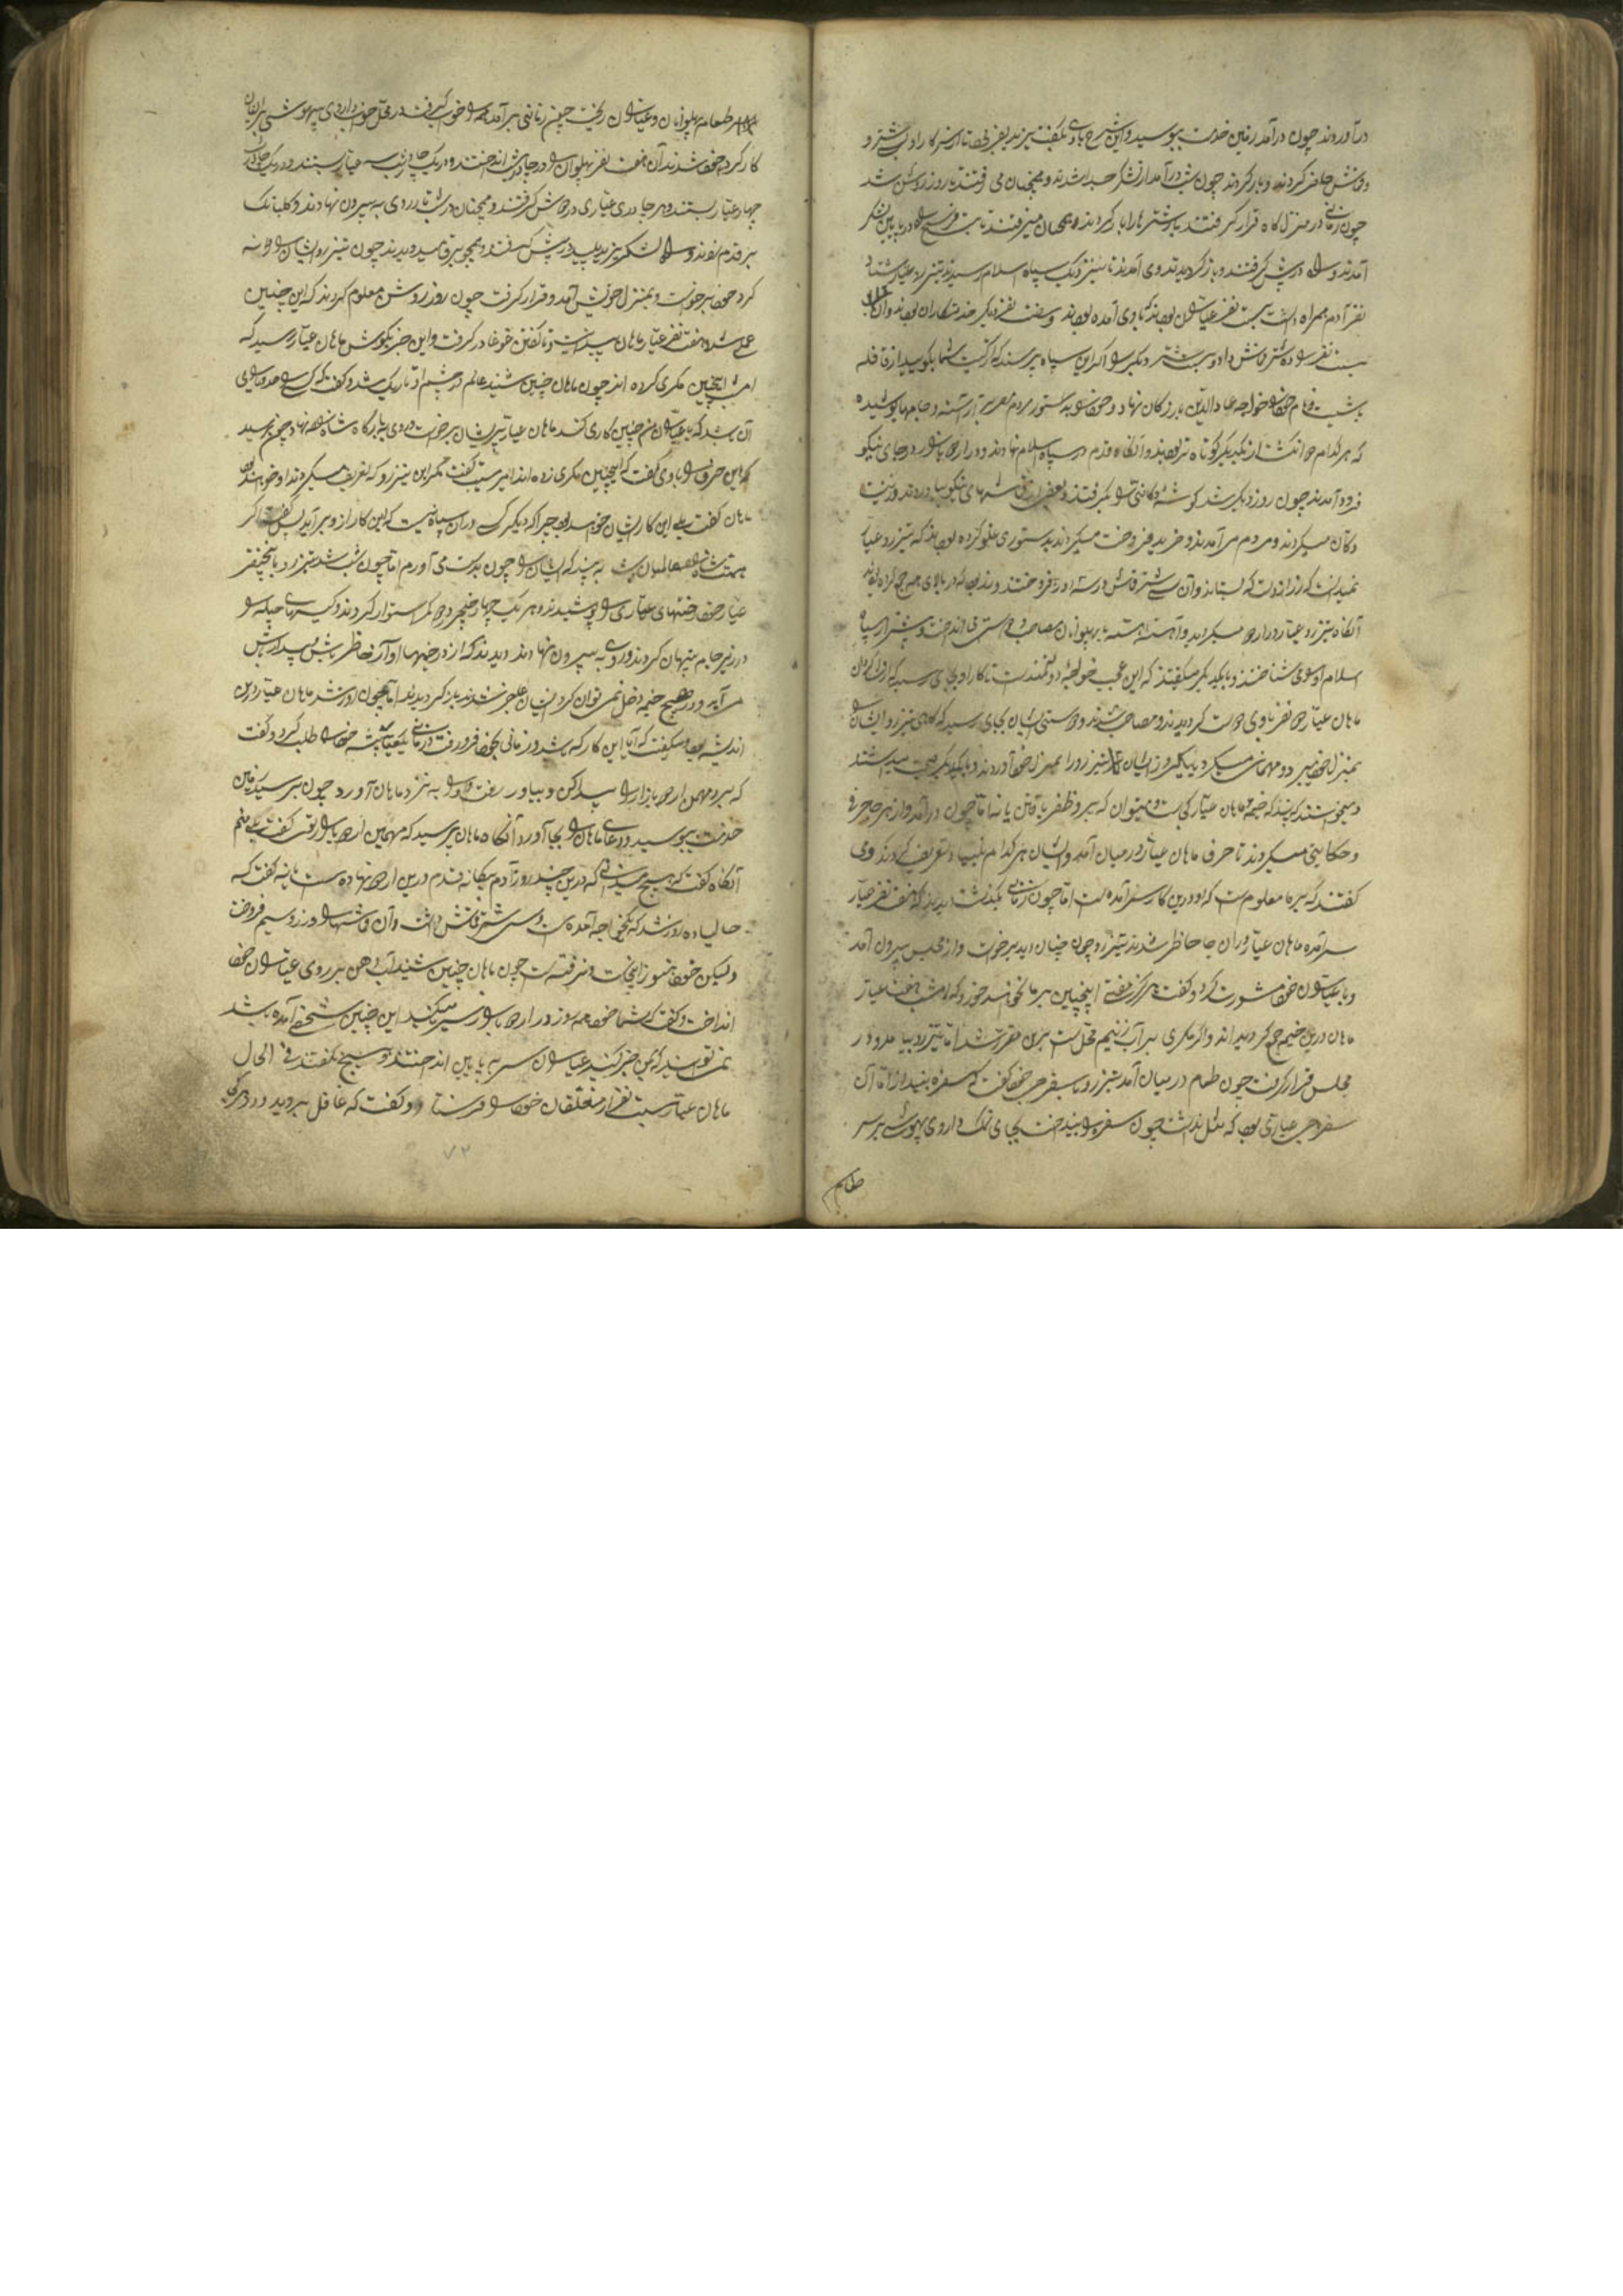 درآوردند چون درآمد زمین خدمت ببوسید و این شرح باوی بگفت یزید بفرمود تا از سرکار او بیست شتر و
قماش حاضر کردند و بار کردند چون شب درآمد از لشکر جدا شدند و همچنان می رفتند تا روز روشن شد
چون زمانی در منزل گاه قرار گرفتند باز شتر هارا بار کردند و همچنان میرفتند تا
آمدند و راه در پیش گرفتند و باز گردیدند و می آمدند تا بنزدیک سپاه اسلام رسیدند تیزرو عیار
نفر آدم همراه داشت بیست نفر عیاران بودند که باوی آمده بودند و نفر دیگر خدمتکاران بودند و آن
بیست نفر را ده شتر قماش داد و بیست شتر دیگر را اگر این سپاه پرسند که از کیست شما بگویید از قافله
باشیست و نام خود را خواجه عمادالدین بازرگان نهاد و خود را به دستور مردم آراسته و جامها پوشیده
که هر کدام چهار انگشت از یکدیگر کوتاه تر بودند و آنگاه قدم در سپاه اسلام نهادند و در اردو بازار در جای نیکو
فرود آمدند چون روز دیگر شد گوشه دکانی را گرفتند و بعضی از قماشهای نیکو بیاوردند و زینت
دکان میکردند و مردم می آمدند و خرید و فروخت میکردند بدستوری غلو کرده بودند که تیزرو عیار
نمیدانست که زر از دست که بستاند و آن سی شتر قماش در سه روز فروختند و زر بود که در بالای هم جمع کرده بودند
آنگاه تیزرو عیار در اردو میگردید و آهسته آهسته با پهلوانان مصاحب و دوستی می انداخت و بیشتر از سپاه
اسلام او را می شناختند و با یکدیگر میگفتند که این عجب خواجه دولتمندست تا کار او بجای رسید که از فراگردان
ماهان عیار چهار نفر باوی دوست گردیدند و مصاحب شدند و دوستی ایشان بجای رسید که گاهی تیزرو ایشان را
بمنزل خود میبرد و مهمانی میکرد تا یکروز ایشان تیزرو را بمنزل خود آوردند و با یکدیگر صحبت میداشتند
و میخواستند که ببینند که خیمه ماهان عیار کجاست و میتوان که برو ظفر یافتن یا نه اما چون درآمد و از هر جا حرفی
و حکایتی میکردند تا حرف ماهان عیار در میان آمد و ایشان هر کدام بنیاد تعریف کردند وی
گفتند که بر ما معلوم است که او درین کار سرآمده است اما چون زمانی بگذشت دیدند که هفت نفر عیار
سرآمده ماهان عیار در آن جا حاظر شدند تیزرو چون چنان دید برخاست و از مجلس بیرون آمد
و با عیاران خود مشورت کرد و گفت هرگز وقتی اینچنین بر ما نخواهد خورد که امشب هفت عیار
ماهان درین خیمه جمع گردیده اند و اگر مکری بر آب زنیم محل است برین مقرر شد اما تیزرو بیامد و در
مجلس قرار گرفت چون طعام در میان آمد تیزرو با سفره چی خود گفت که سفره بیندازد اما آن
سفره چی عیاری بود که مثل نداشت چون سفره را بینداخت بجای نمک داروی بیهوشی بر سر
طعام
بر سر طعام پهلوانان و عیاران ریخت چون زمانی برآمد همه را خواب گرفت در محل خواب داروی بیهوشی بر ایشان
کار کرد و خوش شدند آن هفت نفر پهلوان را در چادرشب انداختند و در یک چادرشب سه عیار بستند و در یک چادر
چهار عیار بستند و هر چادری عیاری در دوش گرفتند و همچنان در شب تار روی به بیرون نهادند و گلبانگ
بر قدم زدند و راه لشکر یزید پلید در پیش گرفتند و همچو برق میدویدند چون تیزرو ایشان را روانه
کرد خود برخاست و بمنزل خویش آمد و قرار گرفت چون روز روشن معلوم کردند که این چنین
عملی شده هفت نفر عیار ماهان پیدا نیست تا گفتن غوغا در گرفت و این خبر بگوش ماهان عیار رسید که
امشب اینچنین مکری کرده اند چون ماهان چنین شنید عالم در چشم او تاریک شد و گفت که کسی را حد و یارای
آن باشد که با عیاران من چنین کاری کند ماهان عیار پریشان برخاست و روی به بارگاه شاه نهاد چون برسید
که این حرف را باوی گفت که اینچنین مکری زده اند امیر مسیب گفت مگر این تیزرو که تعریف میکردند او خواهد بود
ماهان گفت بلی این کار ایشان خواهد بود چرا که دیگر کسی در آن سپاه نیست که این کار ازو برآید پس گفت اگر
همت شاه عالمیان باشد ببیند که ایشان را چون بدست می آورم اما چون شب شد تیزرو با پنج نفر
عیار خود رختهای عیاری را پوشیدند و هر یک چهار خنجر در کمر استوار کردند و کیسهای حیله را
در زیر جامه پنهان کردند و روی به بیرون نهادند دیدند که از در خیمها آواز حاظر باش بیدار باش
می آید و در هیچ خیمه دخل نمی توان کرد ایشان عاجز شدند باز گردیدند اما چون روز شد ماهان عیار درین
اندیشه بود و میگفت که آیا این کار که باشد و زمانی بخود فرو رفت و زمانی یکی خود را طلب کرد و گفت
که برو مهمن اردو بازار را پیدا کن و بیاور رفت و او را به نزد ماهان آورد چون برسید زمین
خدمت ببوسید و دعای ماهان را بجا آورد آنگاه ماهان پرسید که مهمن اردو بازار توی گفت بلی منم
آنگاه گفت که هیچ میدانی که درین چند روز آدم بیگانه قدم درین اردو نهاده است یا نه گفت که
حالیا ده روز شد که یکخواجه آمده است و سی شتر قماش داشت و آن قماشها را در زر و سیم فروخت
ولیکن خود هنوز اینجاست و نرفته است چون ماهان چنین شنید آب دهن بر روی عیاران خود
انداخت و گفت که شما خود همه روز در اردو بازار سیر میکنید این چنین شخصی آمده باشد
نمی توانید که بمن خبر کنید عیاران سر بپایین انداختند و هیچ نگفتند فی الحال
ماهان عیار بیست نفر از متعلقان خود را فرستاد و گفت که غافل بروید و در
۷۲